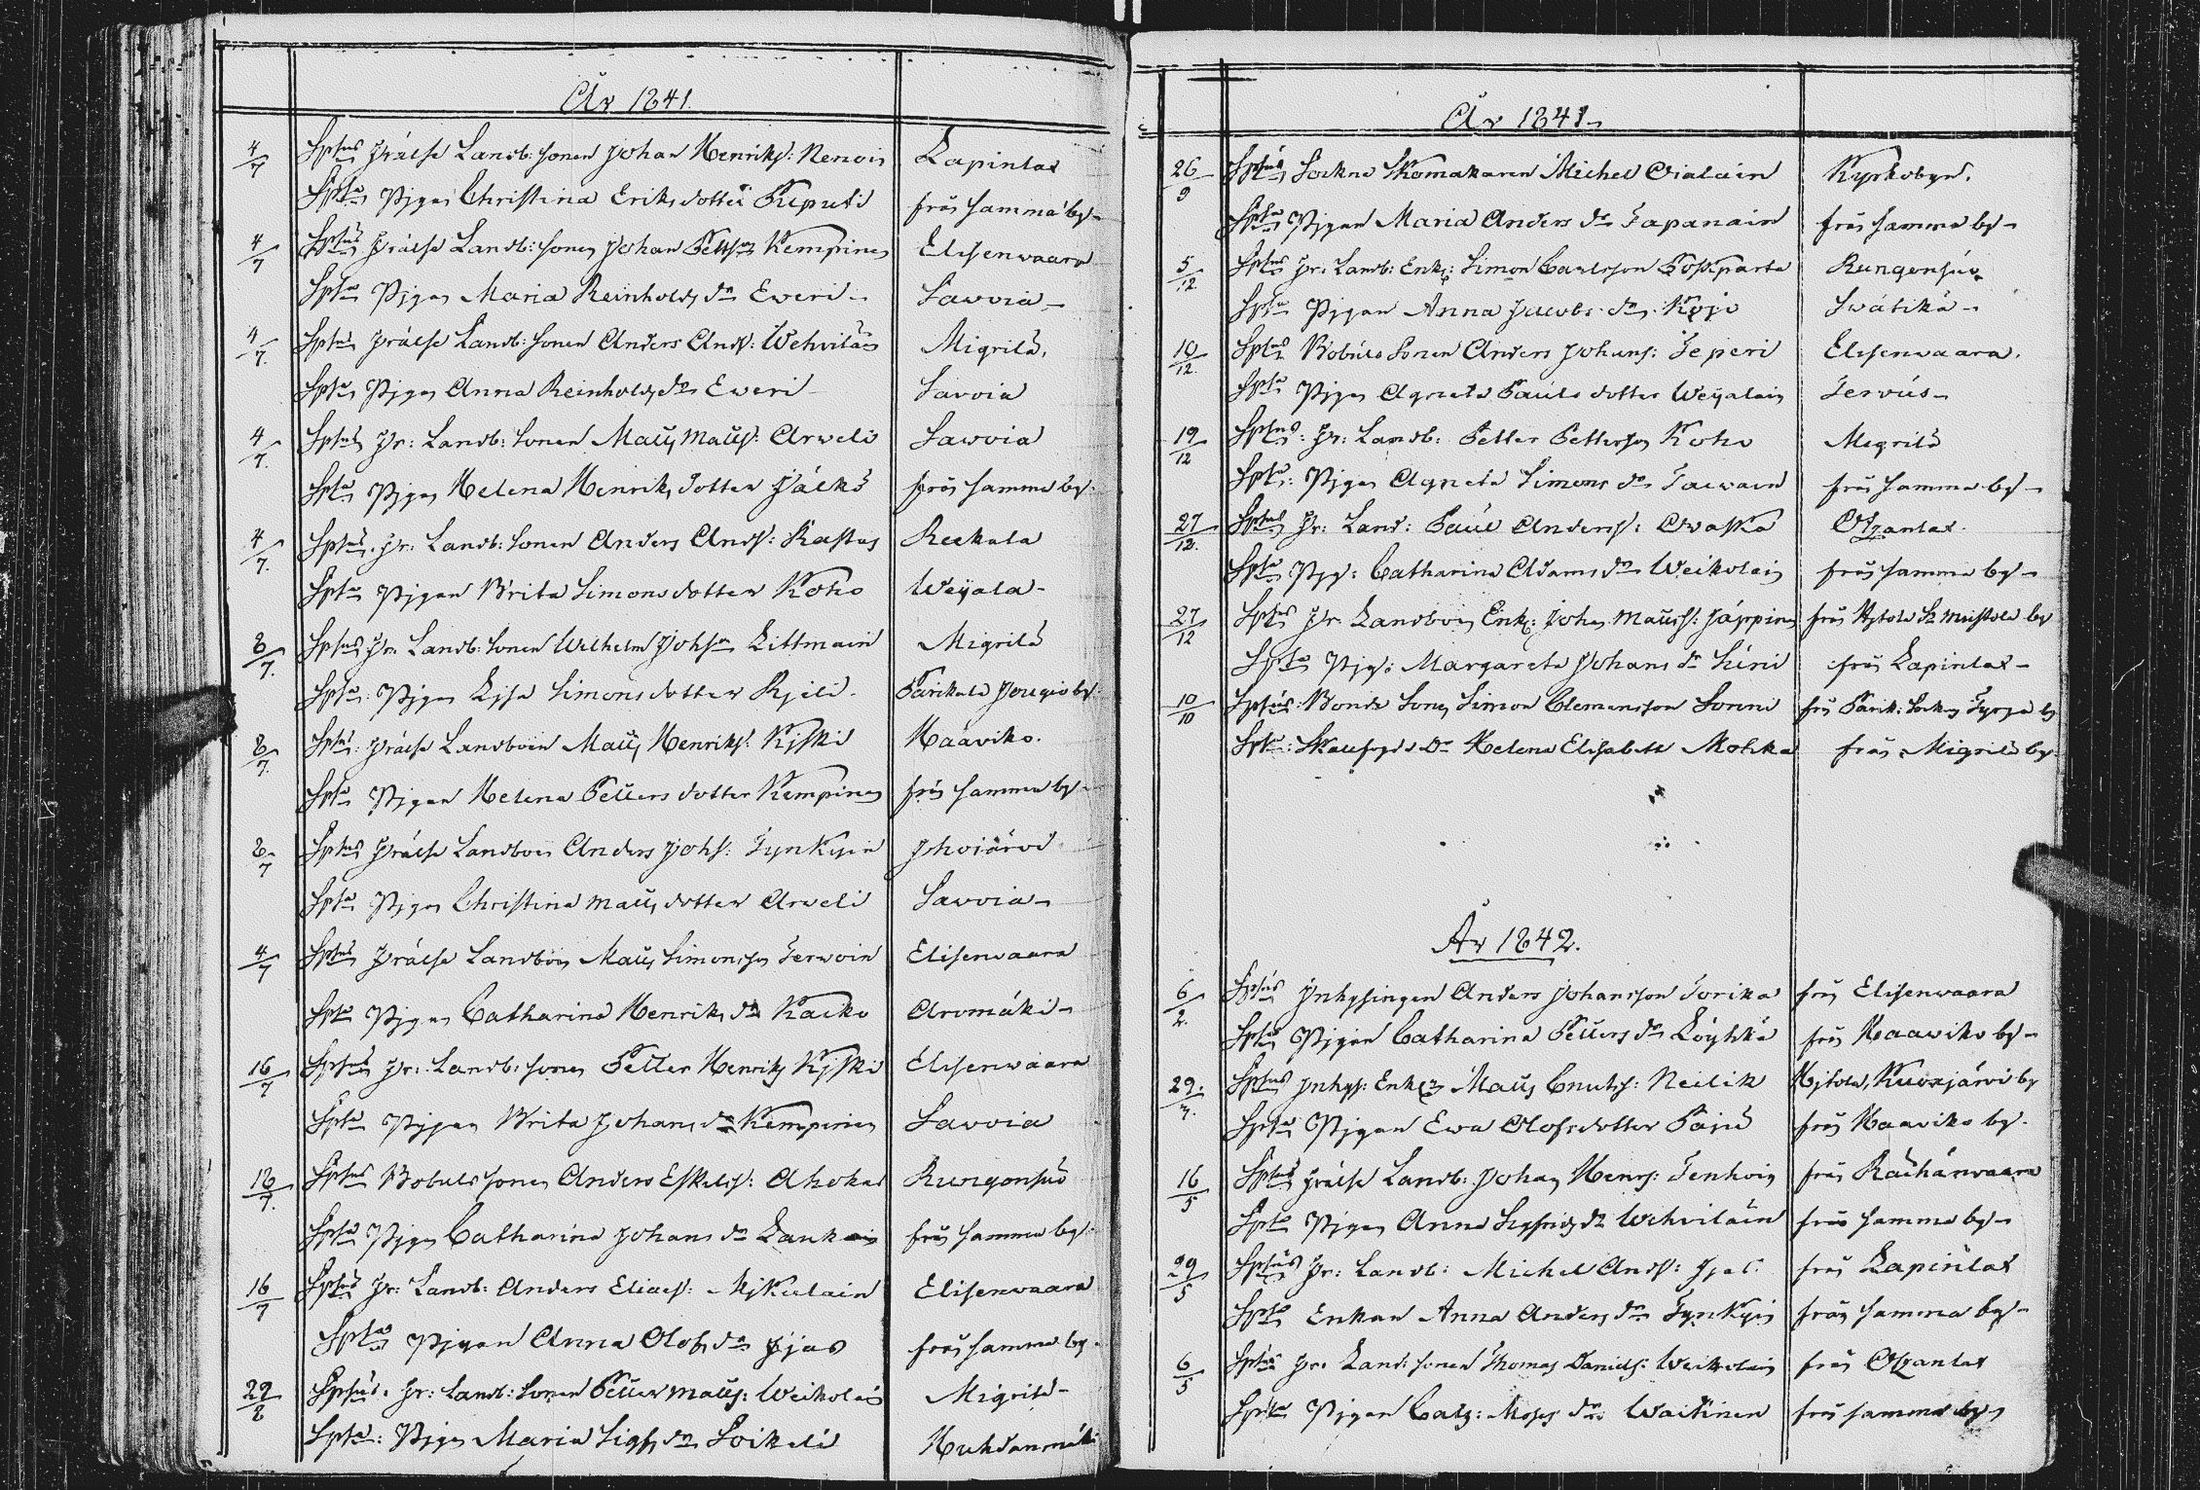 År 1841.
4/7 Sptus Frälse Landb: sonen Johan Henriks: Nenoin Lapinlax
Spta Pigan Christina Eriks dotter Reputi från samma by
4/7 Sptus Frälse Landb: sonen Johan Petters: Kempinen Elisenwaara
Spta Pigan Maria Reinholds dr Eweri Sawoia
4/7 Sptus Frälse Landb: sonen Anders Ands: Wehviläin Migrilä.
Spta Pigan Anna Reinholds dr Eweri Sawoia
4/7 Sptus Fr: Landb: sonen Matts Matts: Arweli Sawoia
Spta Pigan Helena Henriks dotter Jälkö från samma by
4/7 Sptus Fr: Landb: sonen Anders Ands: Rastas Reekala
Spta Pigan Brita Simonsdotter Koho Weijala
8/7 Sptus Fr: Landb: sonen Wilhelm Johs: Littmain Migrilä
Spta Pigan Lisa Simonsdotter Kjeli Parikala Jougio by
8/7 Sptus Frälse Landboen Matts Henriks: Kiiski Haaviko.
Spta Pigan Helena Petters dotter Kempinen från samma by
8/7 Sptus Frälse Landboen Anders Johs: Tynkyin Ihojärvi
Spta Pigan Christina Matts dotter Arweli Sawoia
4/7 Sptus Frälse Landboen Matts Simonsson Terwoin Elisenwaara
Spta Pigan Catharina Henriks dr Kaiko Aromäki
16/7 Sptus Fr: Landb: sonen Petter Henriks Kiiski Elisenwaara
Spta Pigan Brita Johans dr Kempinen Sawoia
18/7 Sptus Bobuls sonen Anders Eskels: Ahokas Rungonsuo
Spta Pigan Catharina Johans dr Laukain från samma by
16/7 Sptus Fr: Landb: Anders Elias: Mikulain Elisenwaara
Spta Pigan Anna Olofs dr Ijas från samma by
29/8 Sptus Fr: Landb: sonen Petter Matts: Weikolain Migrilä
Spta: Pigan Maria Sigfs dr Soikeli Huhdanmäki
År 1841
26/9 Sptus Sockne Skomakaren Michel Aialain Kyrkobyn.
Spta Pigan Maria Anders dr Tapanain från samma by
5/12 Sptus Fr: Landb: Enkl: Simon Carlsson Poskparta Rungonsuo
Spta Pigan Anna Jacobs dr Kojo Swätikä
10/12 Sptus Bobuls sonen Anders Johans: Teperi Elisenwaara.
Spta Pigan Agneta Pauls dotter Weijalain Tervus
19/12 Sptus: Fr: Landb: Petter Pettersson Koho Migrilä
Spta: Pigan Agneta Simons dr Taewain från samma by
27/12 Sptus Fr: Land: Paul Anderss: Owaska Otzanlax
Spta Pig: Catharina Adams dr Weikolain från samma by
27/12 Sptus Fr: Landboen Enkl: Johan Mattss: Jäppinen från Hjtola Sn Mustola by
Spta Pig: Margareta Johans dr Suni från Lapinlax
10/10 Sptus: Bonde sonen Simon Clemensson Sonni frn Parik: Sockn Tyrja by
Spta: Skallfogds dr Helena Elisabeth Mohka från Migrilä by
År 1842.
6/2 Sptus Inhysingen Anders Johansson Torika från Elisenwaara
Spta Pigan Catharina Petters dr Löyhkä från Haaviko by
29/4. Sptus Inhys: Enkl: Matts Cnuts: Neilik Hjtola, Kuoxjärvi by
Spta Pigan Ewa Olofsdotter Paju från Haaviko by
16/5 Sptus Frälse Landb: Johan Henrs: Tenhoin från Räihänwaara
Spta Pigan Anna Sigfrids dr Wehviläin från samma by
29/5 Sptus Fr: Landb: Michel Ands: Ijas från Lapinlax
Spta Enkan Anna Anders dr Tynkyin från samma by
6/5 Sptus Fr: Land: sonen Thomas Daniels: Weikolain från Otzanlax
Spta Pigan Cath: Moses dr: Waittinen från samma by